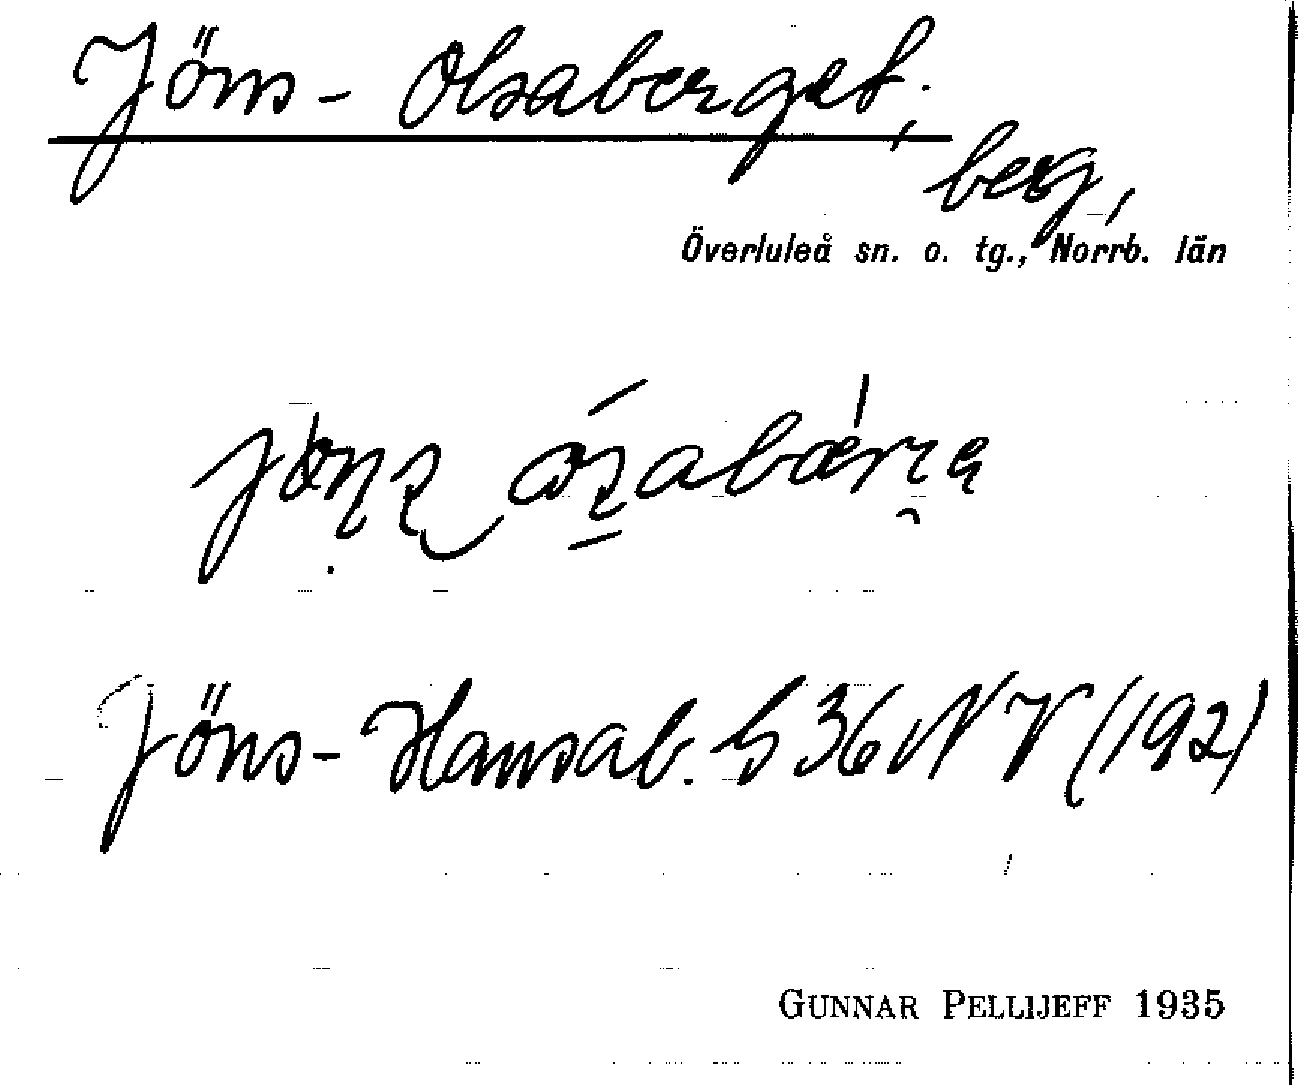 Jöns-Olsaberget,
berg,
Överluleå sn. o. tg., Norrb. län
Jöns-Hansab. G 36 NV (192)
GUNNAR PELLIJEFF 1935